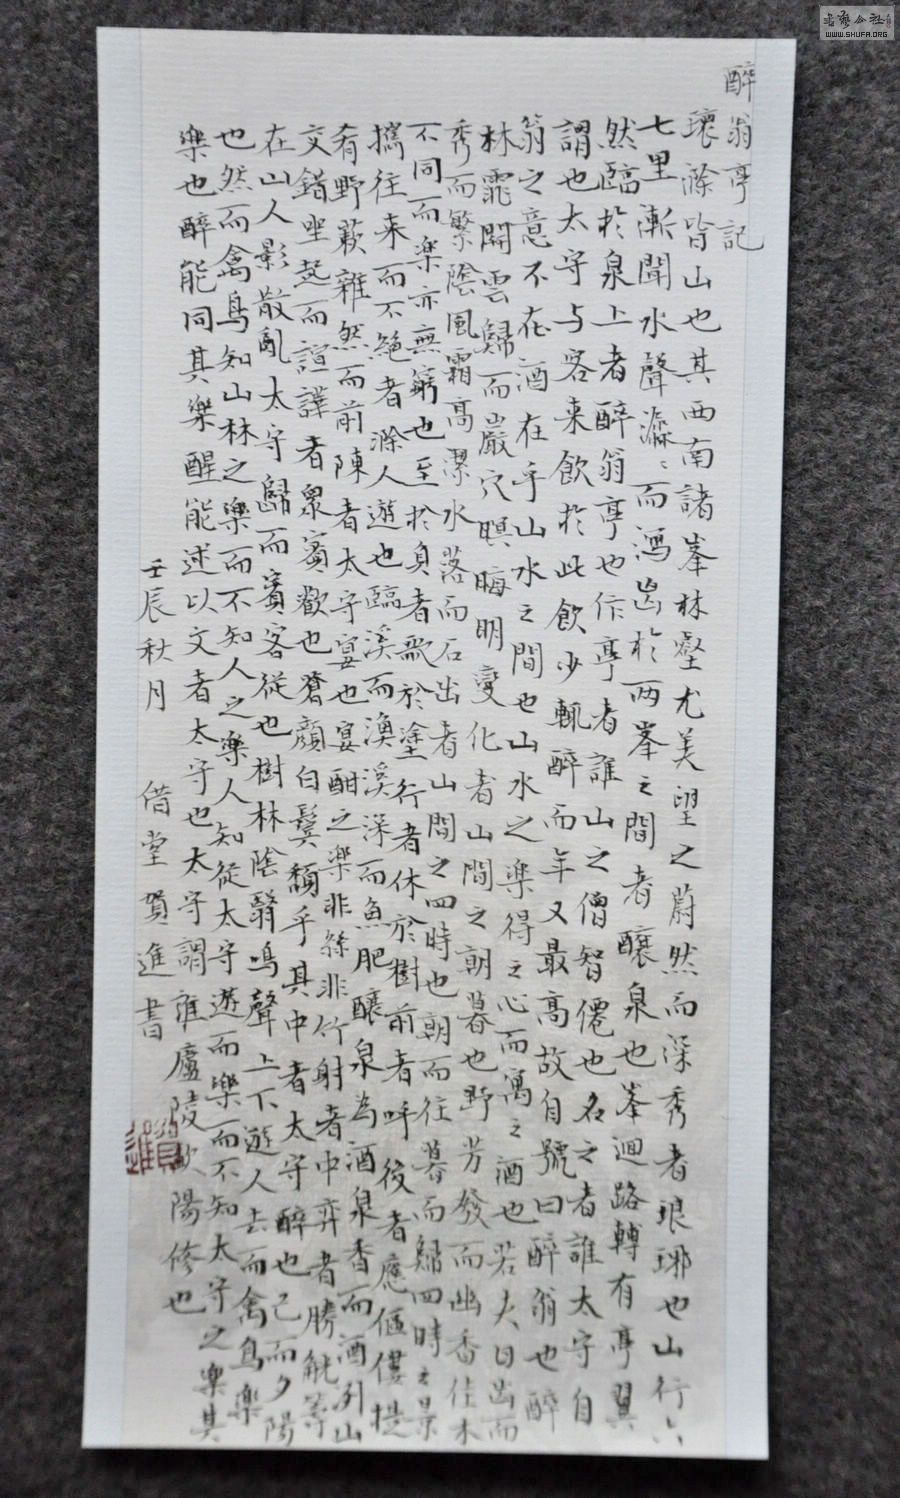 醉翁亭記
環滁皆山也其西南諸峯林壑尤美望之蔚然而深秀者琅琊也山行六
七里漸聞水聲潺〻而瀉出於兩峯之間者釀泉也峯迴路轉有亭翼
然臨於泉上者醉翁亭也作亭者誰山之僧智僊也名之者誰太守自
謂也太守与客来飲於此飲少輒醉而年又最高故自號曰醉翁也醉
翁之意不在酒在乎山水之間也山水之樂得之心而寓之酒也若夫日出而
林霏開雲歸而巖穴暝晦明變化者山間之朝暮也野芳發而幽香佳木
秀而繁陰風霜高潔水落而石出者山間之四時也朝而往暮而歸四時之景
不同而樂亦無窮也至於負者歌於塗行者休於樹前者呼後者應傴僂提
攜往来而不絕者滁人遊也臨溪而漁溪深而魚肥釀泉為酒泉香而酒洌山
肴野蔌雜然而前陳者太守宴也宴酣之樂非絲非竹射者中弈者勝觥籌
交錯坐起而諠譁者眾賓歡也蒼顏白髮頹乎其中者太守醉也已而夕陽
在山人影散亂太守歸而賓客從也樹林陰翳鳴聲上下遊人去而禽鳥樂
也然而禽鳥知山林之樂而不知人之樂人知從太守遊而樂而不知太守之樂其
樂也醉能同其樂醒能述以文者太守也太守謂誰廬陵歐陽修也
壬辰秋月 借堂賀進書
賀進
WWW.SHUFA.ORG